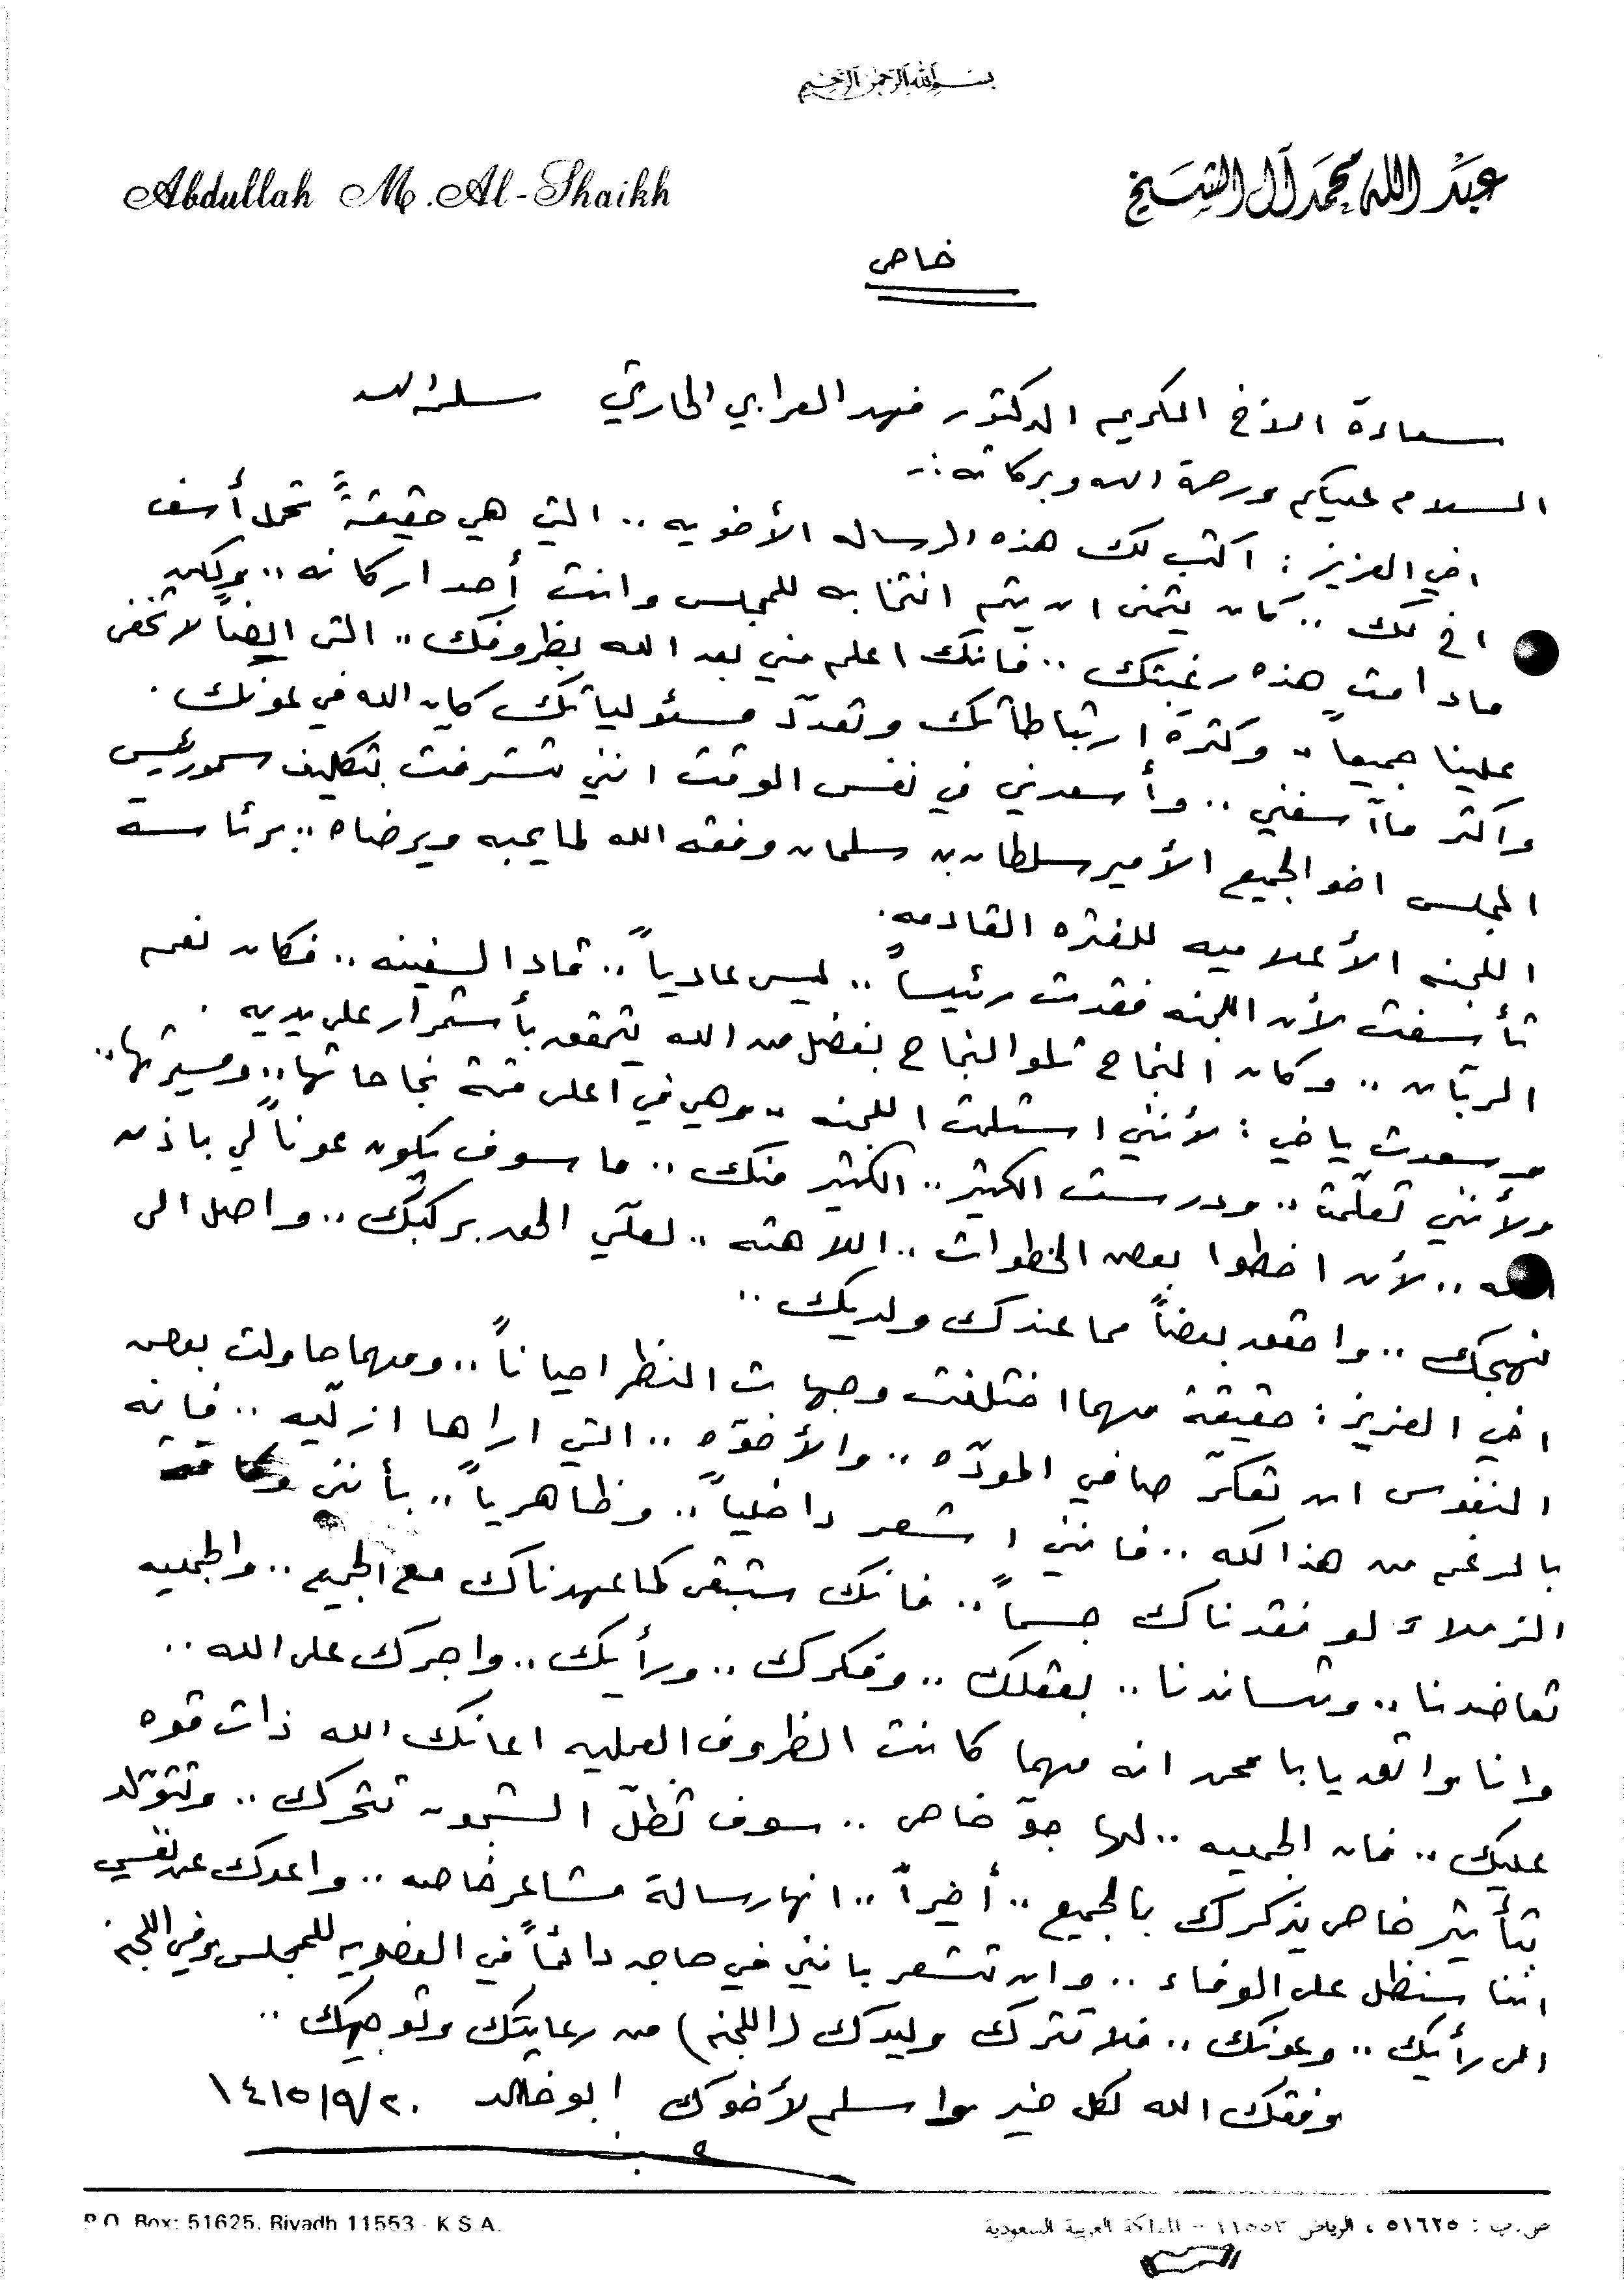 بسم الله الرحمن الرحيم
Abdullah M. Al-Shaikh
عبد الله محمد آل الشيخ
خاص
سعادة الاخ الكريم الدكتور فهد العرابي الحارثي سلمه الله
السلام عليكم ورحمة الله وبركاته :-
اخي العزيز : اكتب لك هذه الرساله الأخويه .. التي هي حقيقةً تحمل أسف
اخ لك .. كان يتمنى ان يتم انتخابه للمجلس وانت أحد اركانه .. ولكن
مادامت هذه رغبتك .. فانك اعلم مني بعد الله بظروفك .. التي ايضاً لا تخفى
علينا جميعاً .. وكثرة ارتباطاتك وتعدد مسئولياتك كان الله في عونك .
واكثر ما آسفني .. وأسعدني في نفس الوقت انني تشرفت بتكليف سمو رئيس
المجلس اخو الجميع الأمير سلطان بن سلمان وفقه الله لما يحبه ويرضاه .. برئاسة
اللجنه الأعلاميه للفتره القادمه .
تأسفت لأن اللجنه فقدت رئيساً .. ليس عادياً .. قاد السفينه .. فكان نعم
الربّان .. وكان النجاح تلو النجاح بفضل من الله يتحقق بأستمرار على يديه .
وسعدت ياخي : لأنني استلمت اللجنه .. وهي في اعلى قمة نجاحاتها .. ومسيرتها ..
ولأنني تعلّمت .. ودرست الكثير .. الكثير منك .. ما سوف يكون عوناً لي باذن
الله .. لأن اخطوا بعض الخطوات .. اللاهثه .. لعلّي الحق بركبك .. واصل الى
نهجك .. واحقق بعضاً مما عندك ولديك ..
اخي العزيز : حقيقة مهما اختلفت وجهات النظر احياناً .. ومهما حاولت بعض
النفوس ان تعكّر صافي المودّه .. والأخوّه .. التي اراها ازليّه .. فإنه
بالرغم من هذا كله .. فانني اشعر داخلياً .. وظاهرياً .. بأنني وكافة
الزملاء لو فقدناك جسماً .. فانك ستبقى كما عهدناك مع الجميع .. والجمعيه
تعاضدنا .. وتساندنا .. بعقلك .. وفكرك .. ورأيك .. واجرك على الله ..
وانا واثق يابا محمد انه مهما كانت الظروف العمليه اعانك الله ذات قوه
عليك .. فان الجمعيه .. لها جوّ خاص .. سوف تظلّ الشجون تتحرك .. وتتولّد
بتأثير خاص يذكرك بالجميع .. أخيراً .. انها رسالة مشاعر خاصه .. واعدك عن نفسي
اننا سنظل على الوفاء .. وان تشعر بانني في حاجه دائماً في العضويه للمجلس وفي اللجنه
الى رأيك .. وعونك .. فلا تترك وليدك (اللجنه) من رعايتك وتوجيهك ..
وفقك الله لكل خير واسلم لأخوك ابو خالد ١٤١٥/٩/٢٠
P.O. Box: 51625, Riyadh 11553 - K.S.A.
ص.ب : ٥١٦٢٥ ، الرياض ١١٥٥٣ - المملكة العربية السعودية